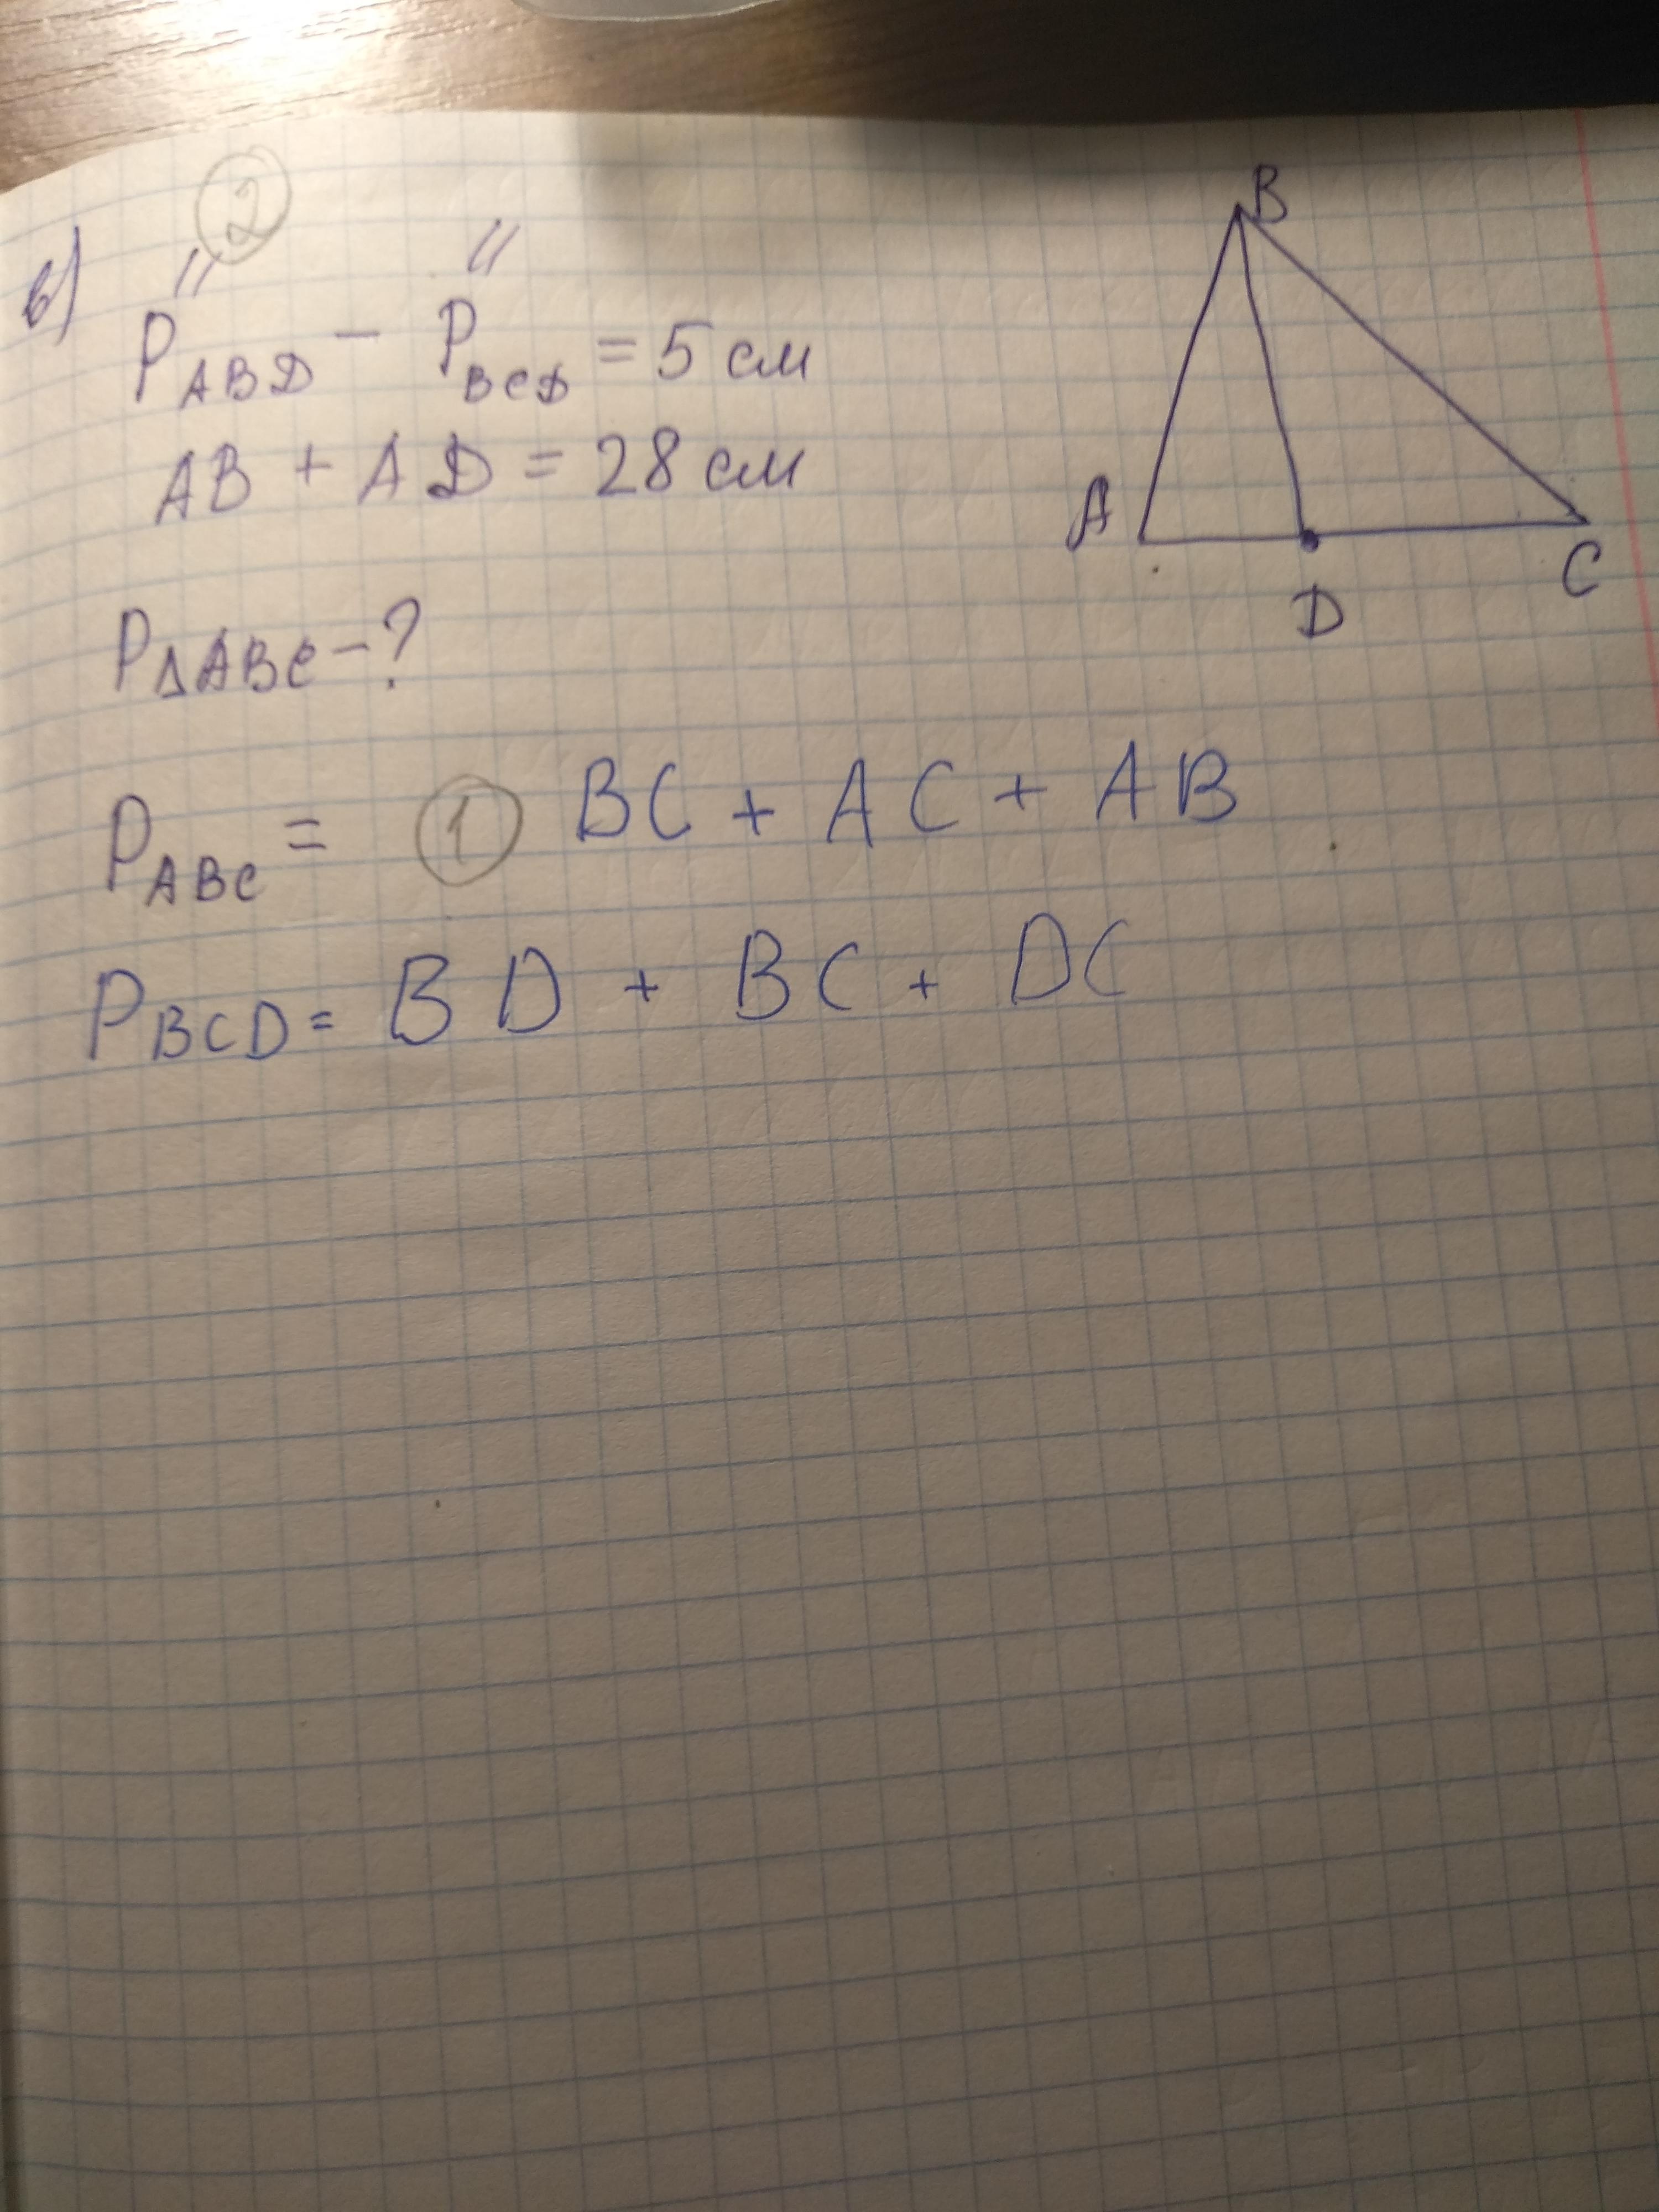 2
в) P ABD - P BCD = 5 см
AB + AD = 28 см
P∆ABC - ?
P ABC = 1 BC + AC + AB
P BCD = BD + BC + DC
B
A
D
C